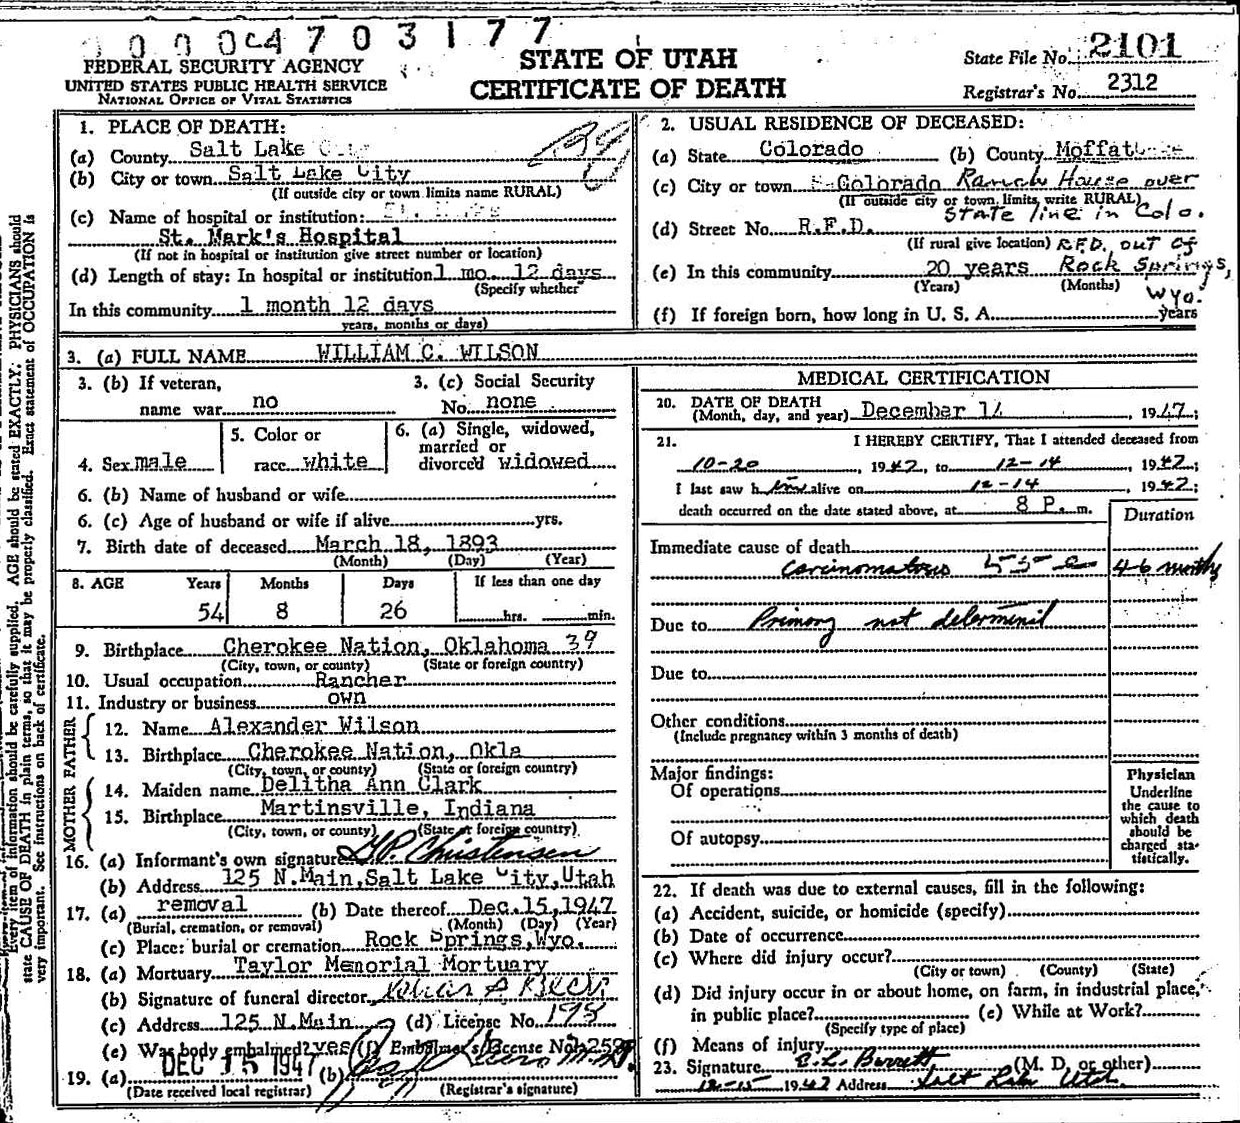 0 0 0 C4 7 0 3 1 7 7
FEDERAL SECURITY AGENCY
UNITED STATES PUBLIC HEALTH SERVICE
NATIONAL OFFICE OF VITAL STATISTICS
STATE OF UTAH
CERTIFICATE OF DEATH
State File No. 2101
Registrar's No. 2312
state CAUSE OF DEATH in plain terms, so that it may be properly classified. Exact statement of OCCUPATION is
Every item of information should be carefully supplied. AGE should be stated EXACTLY. PHYSICIANS should
very important. See instructions on back of certificate.
1. PLACE OF DEATH:
(a) County Salt Lake
(b) City or town Salt Lake City
(If outside city or town limits name RURAL)
(c) Name of hospital or institution:
St. Mark's Hospital
(If not in hospital or institution give street number or location)
(d) Length of stay: In hospital or institution 1 mo. 12 days
(Specify whether
In this community 1 month 12 days
years, months or days)
2. USUAL RESIDENCE OF DECEASED:
(a) State Colorado (b) County Moffat
(c) City or town Colorado Ranch House over
(If outside city or town limits, write RURAL)
State line in Colo.
(d) Street No. R.F.D.
(If rural give location) R.F.D. out of
(e) In this community 20 years Rock Springs,
(Years) (Months)
Wyo.
(f) If foreign born, how long in U. S. A. years
3. (a) FULL NAME WILLIAM C. WILSON
3. (b) If veteran, name war no
3. (c) Social Security No. none
4. Sex male
5. Color or race white
6. (a) Single, widowed, married or divorced widowed
6. (b) Name of husband or wife
6. (c) Age of husband or wife if alive yrs.
7. Birth date of deceased March 18, 1893
(Month) (Day) (Year)
8. AGE Years Months Days If less than one day
54 8 26 hrs. min.
9. Birthplace Cherokee Nation, Oklahoma 39
(City, town, or county) (State or foreign country)
10. Usual occupation Rancher
11. Industry or business own
FATHER
12. Name Alexander Wilson
13. Birthplace Cherokee Nation, Okla
(City, town, or county) (State or foreign country)
MOTHER
14. Maiden name Delitha Ann Clark
15. Birthplace Martinsville, Indiana
(City, town, or county) (State or foreign country)
16. (a) Informant's own signature G.P. Christensen
(b) Address 125 N.Main, Salt Lake City, Utah
17. (a) removal (b) Date thereof Dec. 15, 1947
(Burial, cremation, or removal) (Month) (Day) (Year)
(c) Place: burial or cremation Rock Springs, Wyo.
18. (a) Mortuary Taylor Memorial Mortuary
(b) Signature of funeral director
(c) Address 125 N.Main (d) License No. 193
(e) Was body embalmed? yes (f) Embalmer's License No.
19. (a) DEC 15 1947 (b)
(Date received local registrar) (Registrar's signature)
MEDICAL CERTIFICATION
20. DATE OF DEATH
(Month, day, and year) December 14, 1947;
21. I HEREBY CERTIFY, That I attended deceased from
10-20, 1947, to 12-14, 1947;
I last saw him alive on 12-14, 1947;
death occurred on the date stated above, at 8 P. m.
Duration
Immediate cause of death
Carcinomatosis 55 e 4-6 months
Due to Primary not determined
Due to
Other conditions
(Include pregnancy within 3 months of death)
Major findings:
Of operations
Of autopsy
Physician
Underline
the cause to
which death
should be
charged sta-
tistically.
22. If death was due to external causes, fill in the following:
(a) Accident, suicide, or homicide (specify)
(b) Date of occurrence
(c) Where did injury occur?
(City or town) (County) (State)
(d) Did injury occur in or about home, on farm, in industrial place,
in public place? (e) While at Work?
(Specify type of place)
(f) Means of injury
23. Signature E. L. Barrett (M. D. or other)
12-15 1947 Address Salt Lake Utah